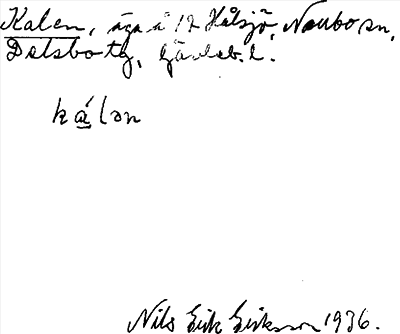 Kalen, äga å 12 Hålsjö, Norrbo sn,
Delsbo tg, Gävleb. l.
kálən
Nils Erik Eriksson 1936.